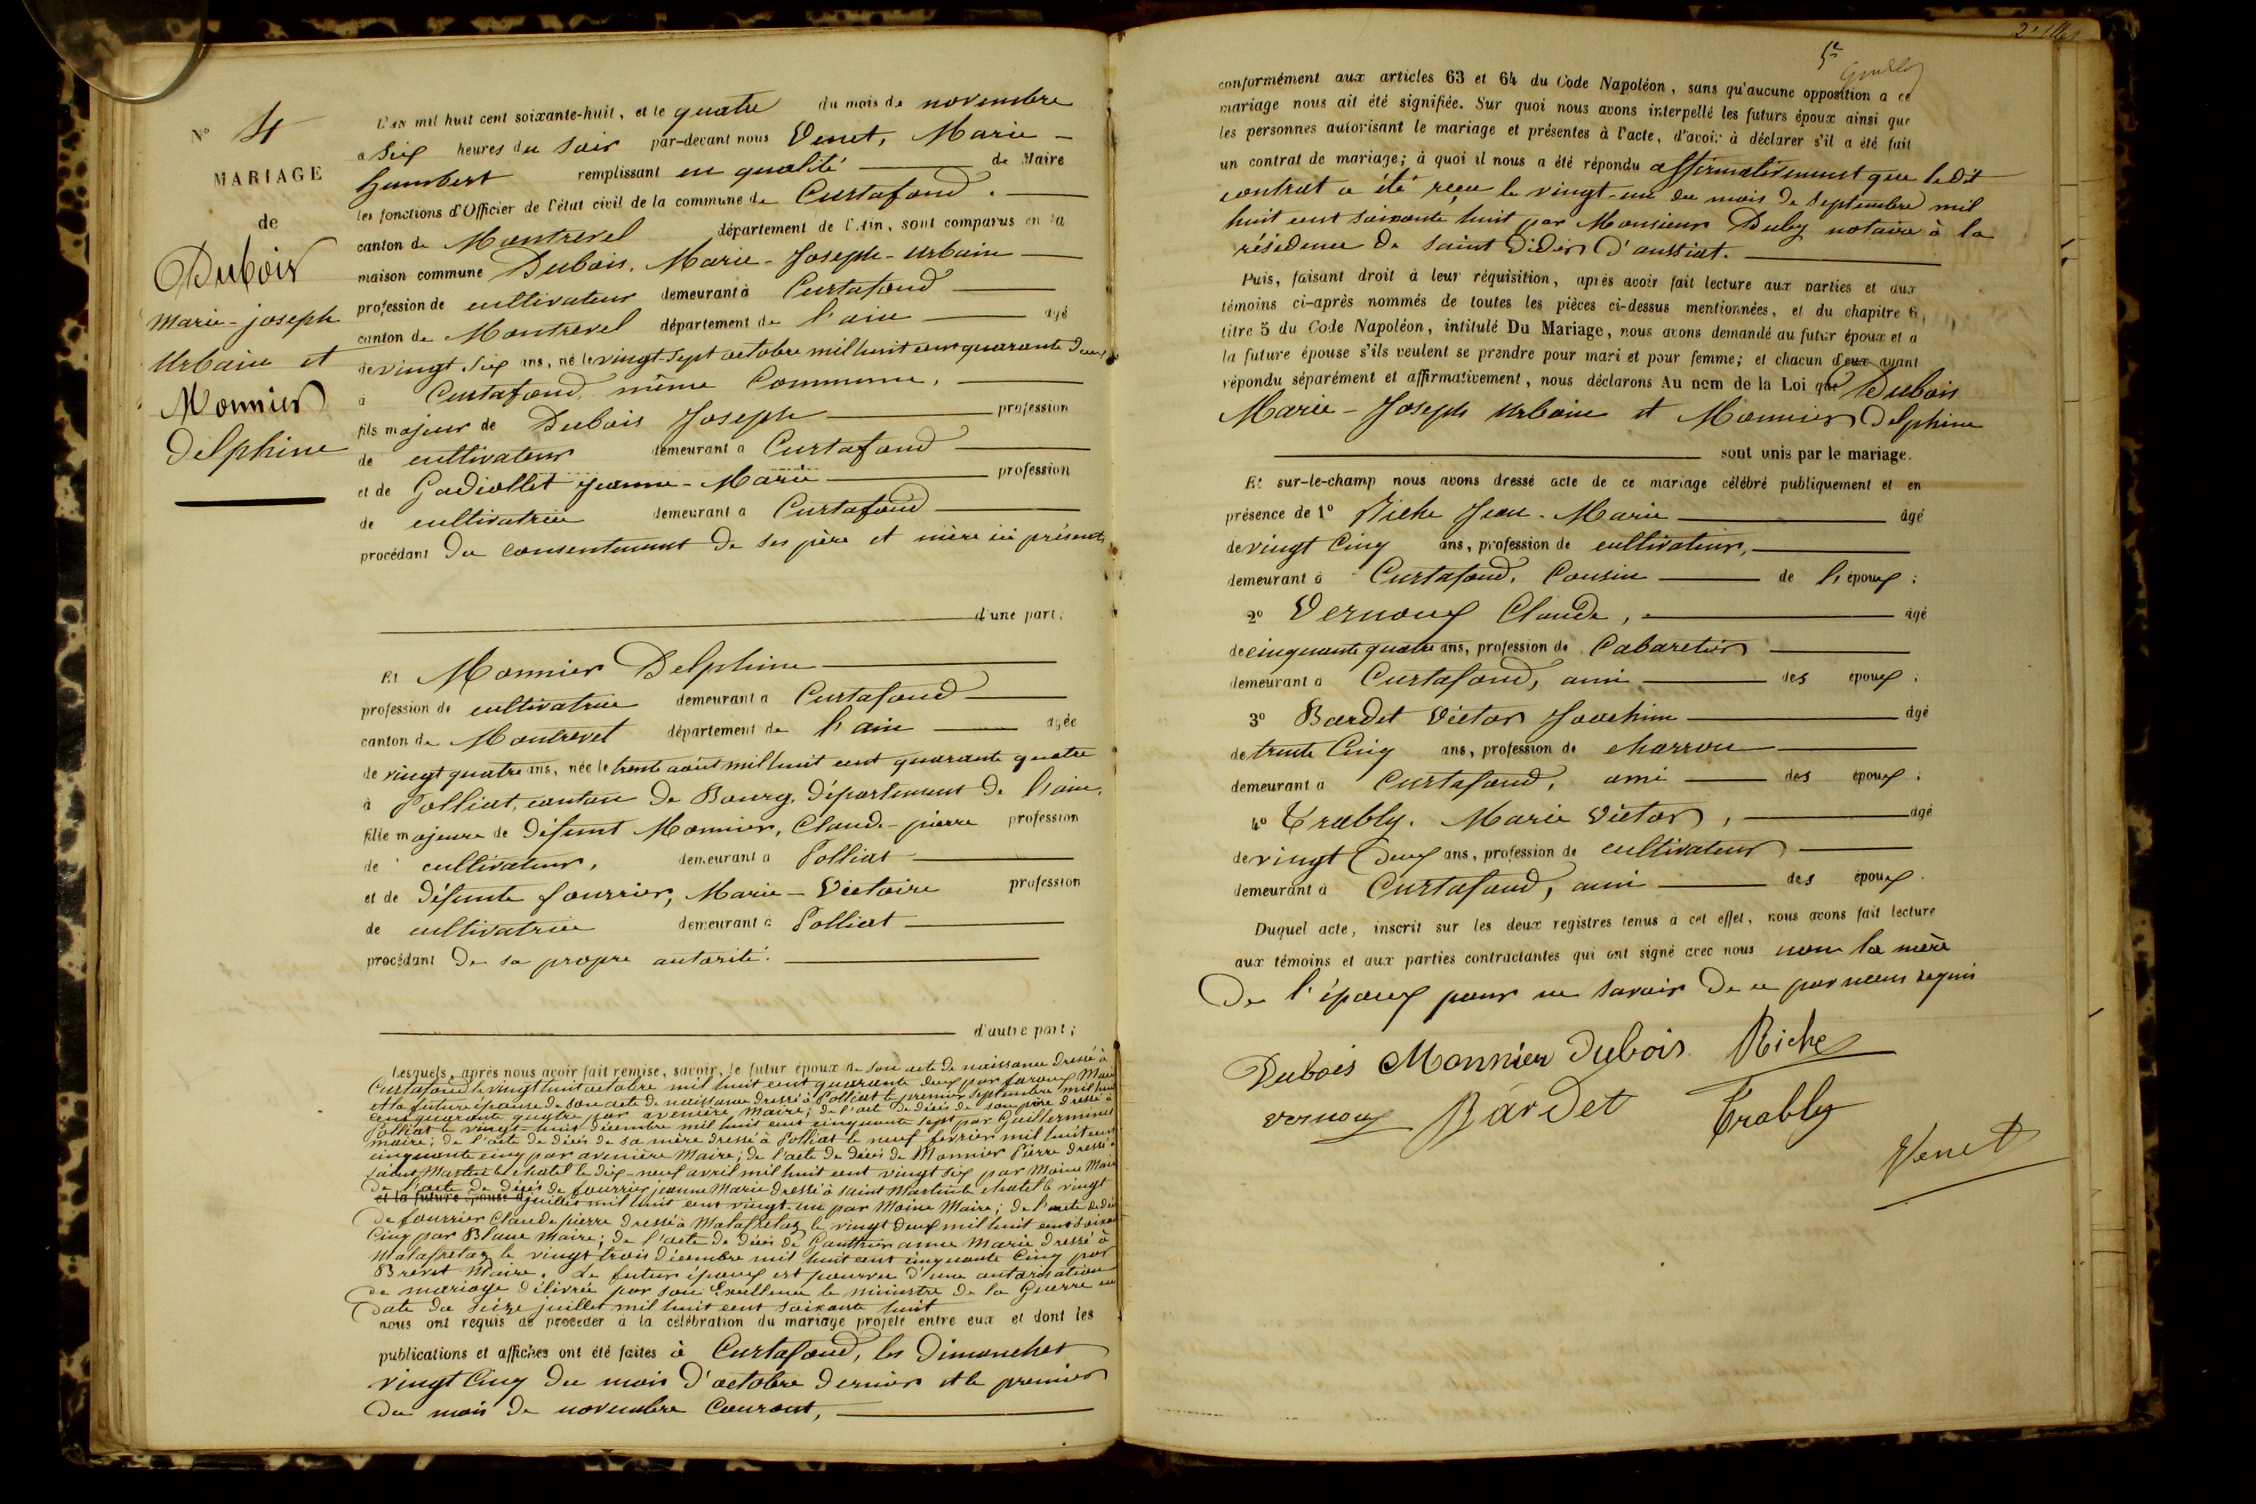 N° 4
MARIAGE
de
Dubois
Marie-joseph
Urbain et
Monnier
Delphine
L'an mil huit cent soixante-huit, et le quatre du mois de novembre
à Six heures du soir par-devant nous Venet, Marie -
humbert remplissant en qualité de Maire
les fonctions d'Officier de l'état civil de la commune de Curtafond.
canton de Montrevel département de l'Ain, sont comparus en la
maison commune Dubois, Marie-Joseph-Urbain
profession de cultivateur demeurant à Curtafond
canton de Montrevel département de l'ain âgé
de vingt-six ans, né le vingt-sept octobre mil huit cent quarante deux
à Curtafond, même Commune,
fils majeur de Dubois Joseph profession
de cultivateur demeurant à Curtafond
et de Gadiollet Jeanne-Marie profession
de cultivatrice demeurant à Curtafond
procédant du consentement de ses père et mère ici présents
d'une part;
Et Monnier Delphine
profession de cultivatrice demeurant à Curtafond
canton de Montrevel département de l'ain âgée
de vingt quatre ans, née le trente août mil huit cent quarante quatre
à Polliat, canton de Bourg, département de l'ain,
fille majeure de défunt Monnier, Claude-pierre profession
de cultivateur, demeurant à Polliat
et de défunte fourrier, Marie-Victoire profession
de cultivatrice demeurant à Polliat
procédant de sa propre autorité.
d'autre part;
Lesquels, après nous avoir fait remise, savoir, le futur époux de son acte de naissance dressé à
Curtafond le vingt huit octobre mil huit cent quarante deux par faroux Maire
et la future épouse de son acte de naissance dressé à Polliat le premier septembre mil huit
cent quarante quatre par avenière, Maire; de l'acte de décès de son père dressé à
Polliat le vingt-huit décembre mil huit cent cinquante sept par Guillerminet
maire; de l'acte de décès de sa mère dressé à Polliat le neuf fevrier mil huit cent
cinquante cinq par avenière Maire; de l'acte de décès de Monnier Pierre dressé à
saint Martin le chatel le dix-neuf avril mil huit cent vingt six par Moine Maire
de l'acte de décès de fourrier jeanne Marie dressé à saint Martin le chatel le vingt
et la future épouse d juillet mil huit cent vingt-un par Moine Maire; de l'acte de décès
de fourrier Claude pierre dressé à Malafretaz le vingt deux mil huit cent soixante
Cinq par Blanc Maire; de l'acte de décès de Gauthier anne Marie dressé à
Malafretaz le vingt trois décembre mil huit cent cinquante Cinq par
Brevet Maire. Le futur époux est pourvu d'une autorisation
de mariage délivrée par son Excellence le ministre de la Guerre en
date du seize juillet mil huit cent soixante huit
nous ont requis de procéder à la célébration du mariage projeté entre eux et dont les
publications et affiches ont été faites à Curtafond, les Dimanches
vingt Cinq du mois d'octobre dernier et le premier
du mois de novembre Courant,
conformément aux articles 63 et 64 du Code Napoléon, sans qu'aucune opposition a ce
mariage nous ait été signifiée. Sur quoi nous avons interpellé les futurs époux ainsi que
les personnes autorisant le mariage et présentes à l'acte, d'avoir à déclarer s'il a été fait
un contrat de mariage; à quoi il nous a été répondu affirmativement que le dit
contrat a été reçu le vingt-un du mois de septembre mil
huit cent soixante huit par Monsieur Duby notaire à la
résidence de saint Didier d'aussiat.
Puis, faisant droit à leur réquisition, après avoir fait lecture aux parties et aux
témoins ci-après nommés de toutes les pièces ci-dessus mentionnées, et du chapitre 6,
titre 5 du Code Napoléon, intitulé Du Mariage, nous avons demandé au futur époux et à
la future épouse s'ils veulent se prendre pour mari et pour femme; et chacun d'eux ayant
répondu séparément et affirmativement, nous déclarons Au nom de la Loi que Dubois
Marie-Joseph Urbain et Monnier Delphine
sont unis par le mariage.
Et sur-le-champ nous avons dressé acte de ce mariage célébré publiquement et en
présence de 1° Riche Jean-Marie âgé
de vingt Cinq ans, profession de cultivateur,
demeurant à Curtafond, Cousin de l'époux;
2° Vernoux Claude, âgé
de cinquante quatre ans, profession de Cabaretier
demeurant à Curtafond, ami des époux;
3° Bardet Victor Joachim âgé
de trente Cinq ans, profession de charron
demeurant à Curtafond, ami des époux;
4° Trably, Marie Victor, âgé
de vingt deux ans, profession de cultivateur
demeurant à Curtafond, ami des époux.
Duquel acte, inscrit sur les deux registres tenus à cet effet, nous avons fait lecture
aux témoins et aux parties contractantes qui ont signé avec nous non la mère
de l'époux pour ne savoir de ce par nous requis
Dubois Monnier Dubois Riche
vernoux Bardet Trably
Venet